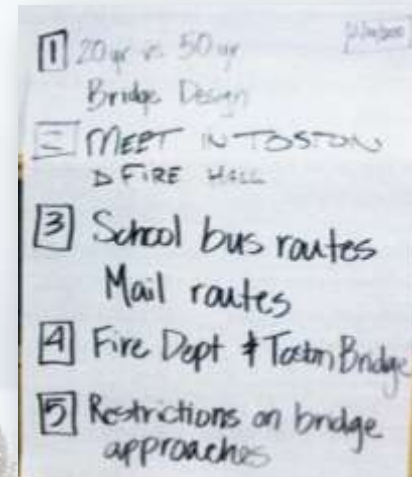 1 20 yr vs 50 yr
Bridge Design
2 MEET IN TOSTON
FIRE HALL
3 School bus routes
Mail routes
4 Fire Dept & Toston Bridge
5 Restrictions on bridge
approaches